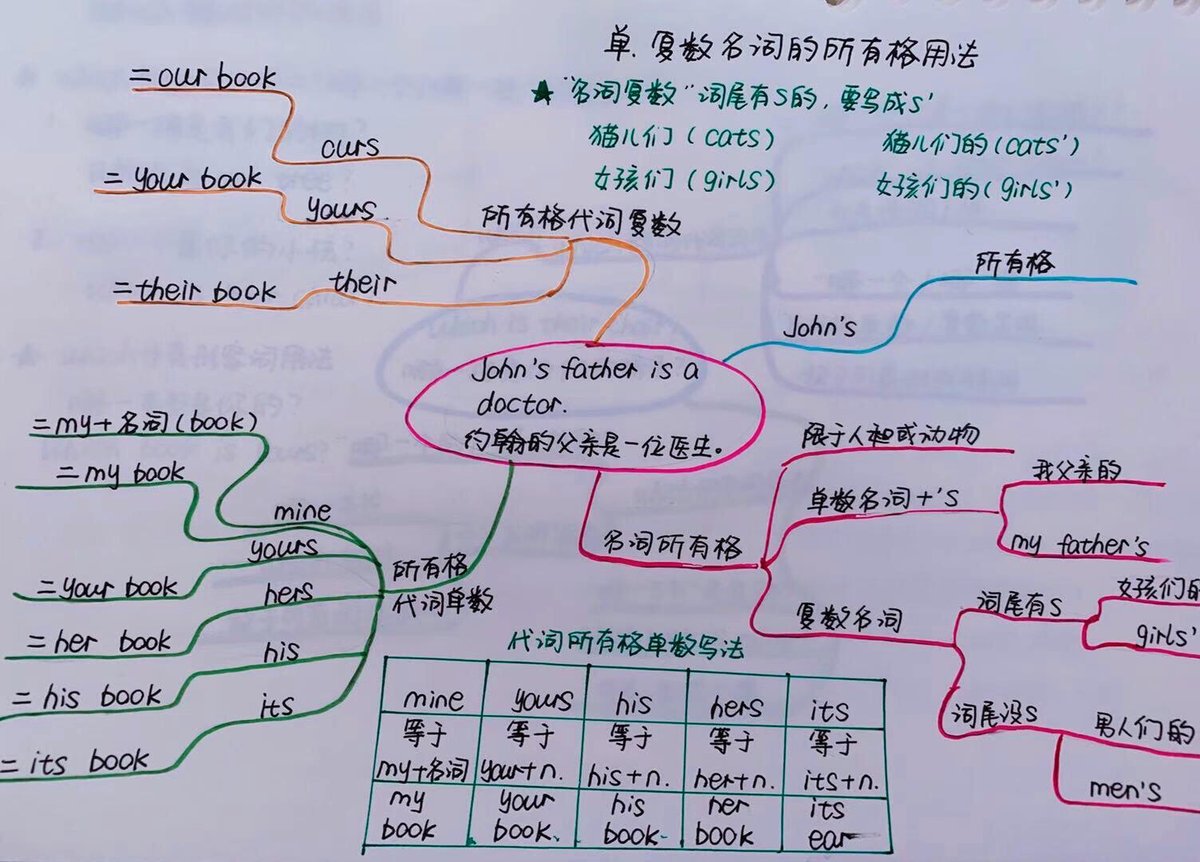 单.复数名词的所有格用法
★"名词复数"词尾有S的,要写成S'
猫儿们(cats) 猫儿们的(cats')
女孩们(girls) 女孩们的(girls')
=our book
ours
=your book
yours.
=their book
their
所有格代词复数
John's
所有格
John's father is a
doctor.
约翰的父亲是一位医生。
=my+名词(book)
=my book
mine
=your book
yours
=her book
hers
=his book
his
=its book
its
所有格
代词单数
名词所有格
限于人和或动物
单数名词+'S
我父亲的
my father's
复数名词
词尾有S
女孩们的
girls'
词尾没S
男人们的
men's
代词所有格单数写法
mine yours his hers its
等于 等于 等于 等于 等于
my+名词 your+n. his+n. her+n. its+n.
my your his her its
book book. book. book ear